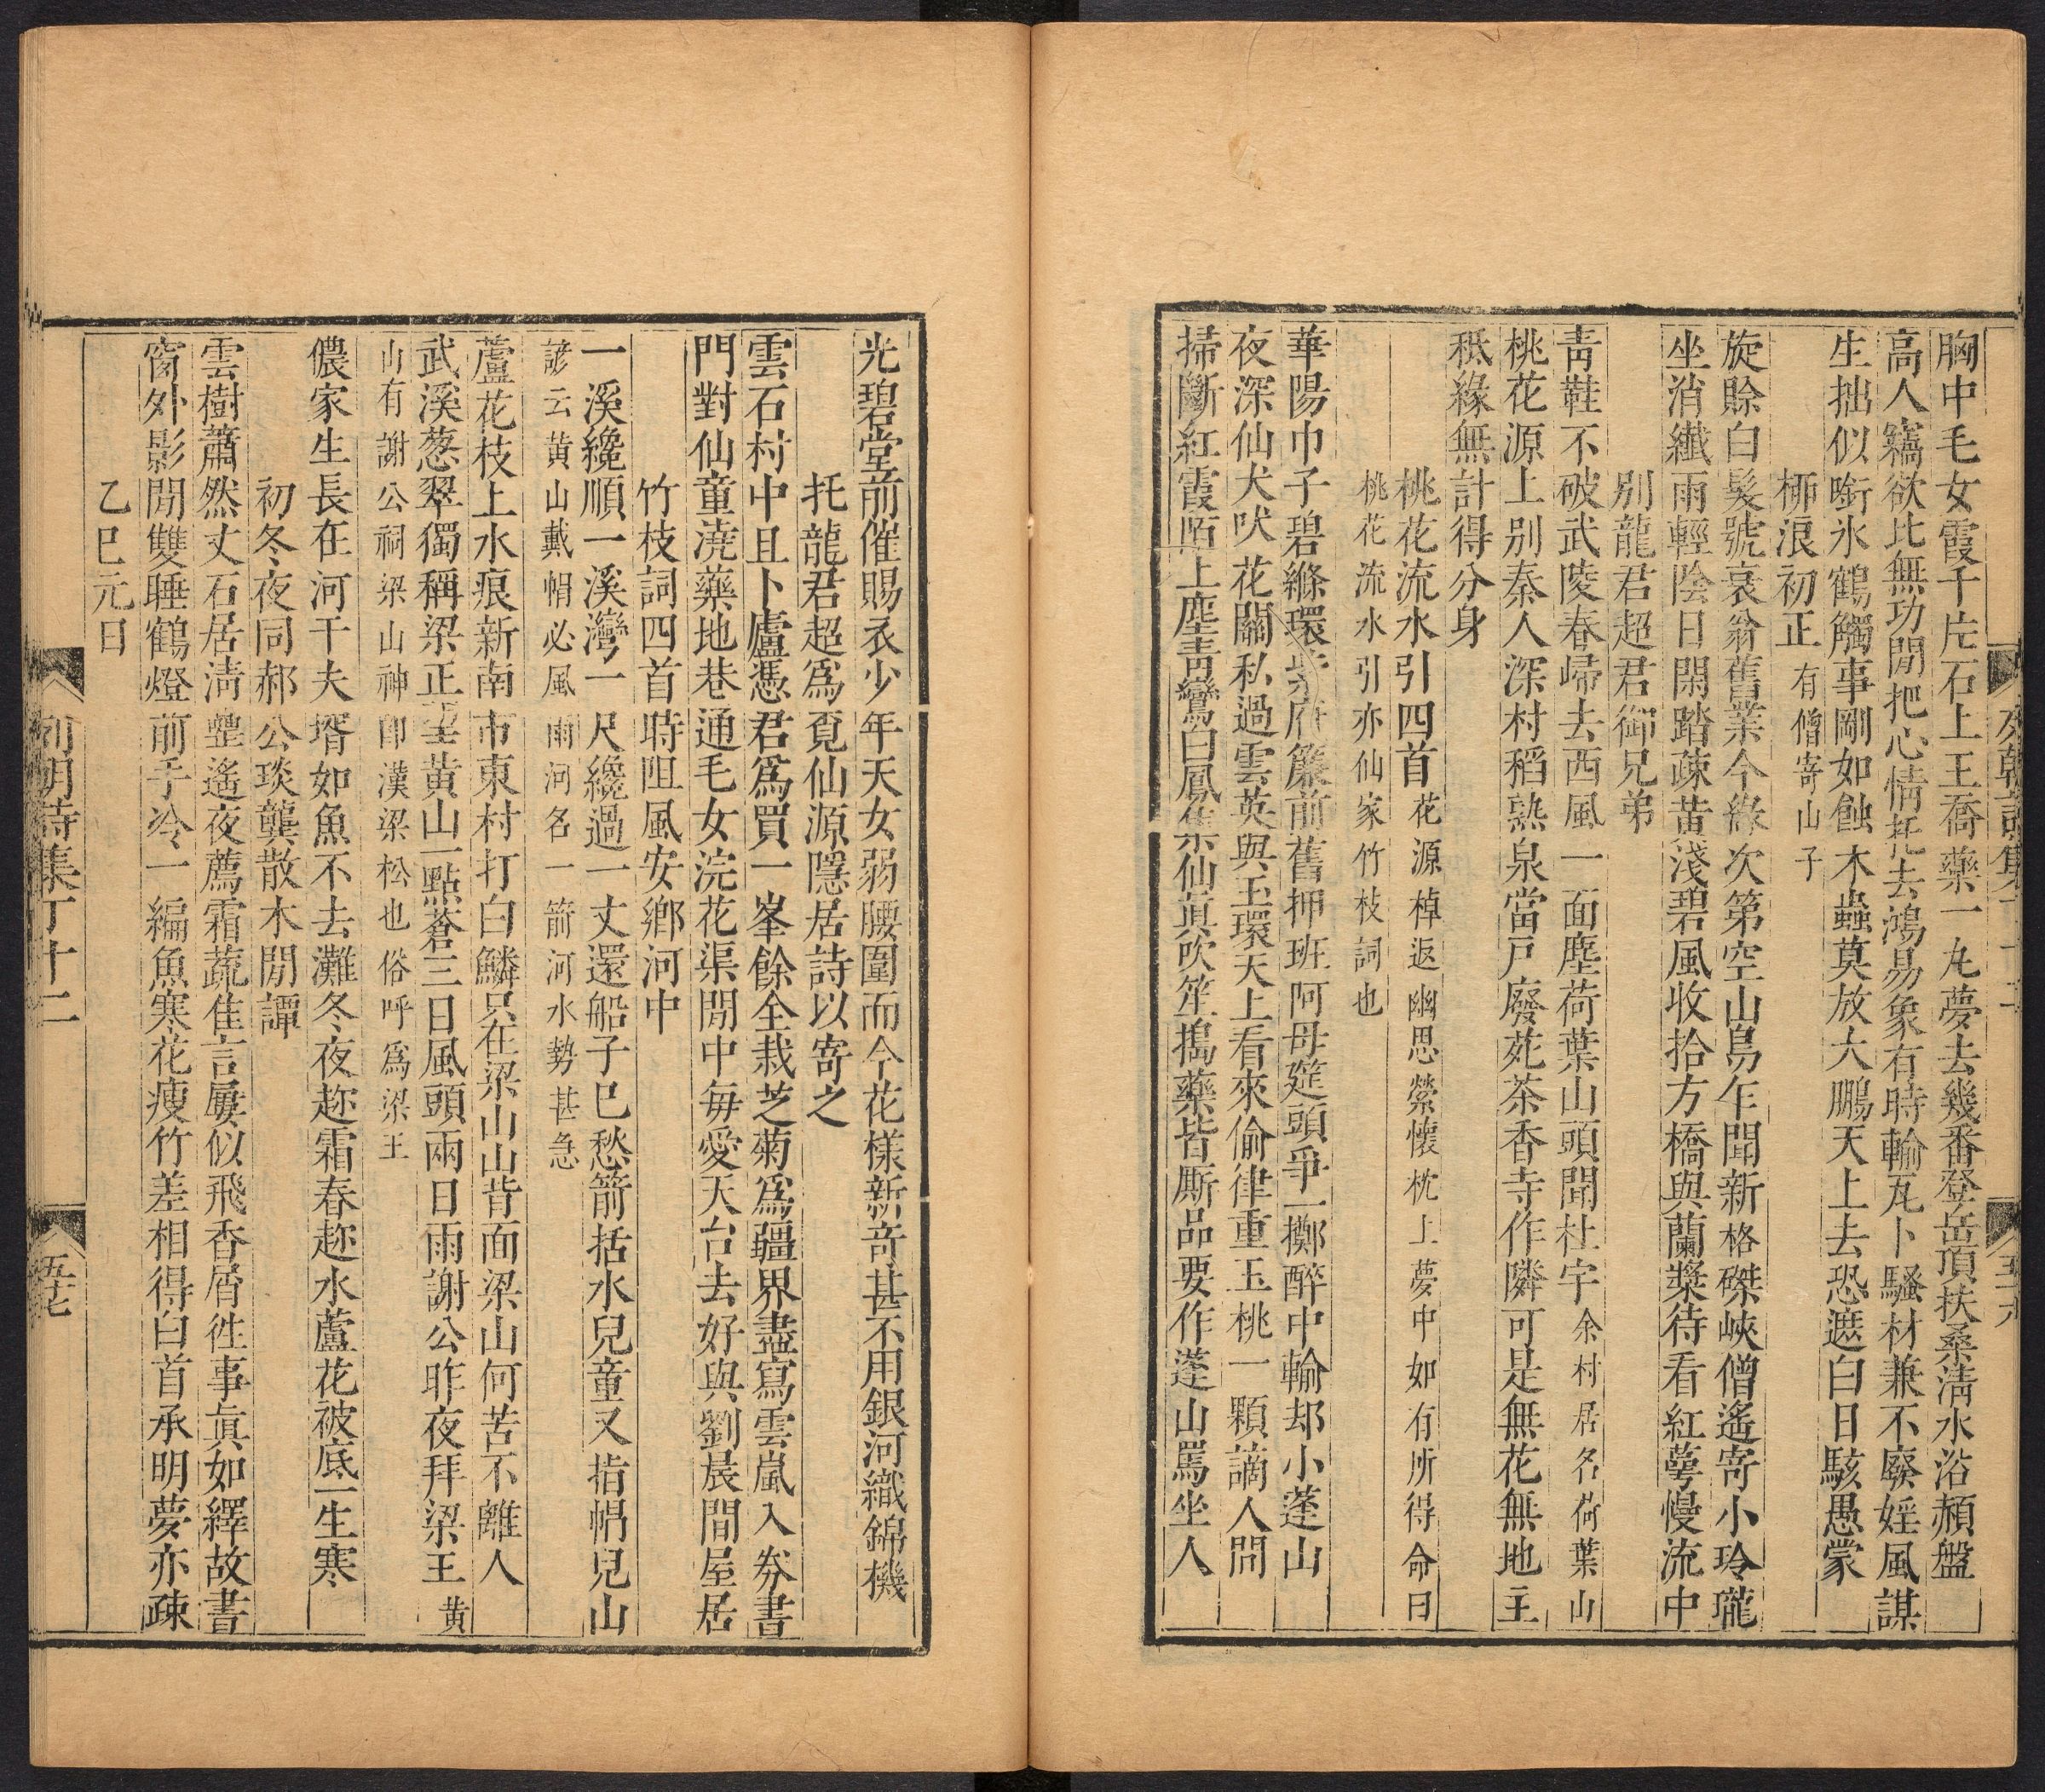 胸中毛女霞千片石上王喬藥一丸夢去幾番登岳頂扶桑淸水浴頳盤
高人竊欲比無功閒把心情托去鴻易象有時輸瓦卜騷材兼不廢婬風謀
生拙似銜氷鶴觸事剛如蝕木蟲莫放大鵬天上去恐遮白日駭愚蒙
栁浪初正有僧寄山子
旋賖白髮號哀翁舊業今緣次第空山鳥乍聞新格磔峽僧遙寄小玲瓏
坐消纎雨輕陰日閑踏疎黃淺碧風收拾方橋與蘭槳待看紅蕚慢流中
别龍君超君御兄弟
靑鞋不破武陵春歸去西風一面塵荷葉山頭聞杜宇余村居名荷葉山
桃花源上別秦人深村稻熟泉當戸廢苑茶香寺作隣可是無花無地主
秪緣無計得分身
桃花流水引四首花源棹返幽思縈懷枕上夢中如有所得命曰
桃花流水引亦仙家竹枝詞也
華陽巾子碧絛環紫府簾前舊押班阿母筵頭爭一擲醉中輸却小蓬山
夜深仙犬吠花關私過雲英與玉環天上看來偷律重玉桃一顆謫人間
掃斷紅霞陌上塵靑鸞白鳳集仙眞吹笙搗藥皆厮品要作蓬山罵坐人
光碧堂前催賜衣少年天女弱腰圍而今花樣新竒甚不用銀河織錦機
托龍君超爲覔仙源隱居詩以寄之
雲石村中且卜廬憑君爲買一峯餘全栽芝菊爲疆界盡寫雲嵐入劵書
門對仙童澆藥地巷通毛女浣花渠閒中每愛天台去好與劉晨間屋居
竹枝詞四首時阻風安鄉河中
一溪纔順一溪灣一尺纔過一丈還船子巳愁箭括水兒童又指帽兒山
諺云黃山戴帽必風雨河名一箭河水勢甚急
蘆花枝上水痕新南市東村打白鱗只在梁山山背面梁山何苦不離人
武溪葱翠獨稱梁正坐黃山一點蒼三日風頭兩日雨謝公昨夜拜梁王黃
山有謝公祠梁山神卽漢梁松也俗呼爲梁王
儂家生長在河干夫壻如魚不去灘冬夜趂霜春趂水蘆花被底一生寒
初冬夜同郝公琰龔散木閒譚
雲樹蕭然丈石居淸罍遙夜薦霜蔬隹言屢似飛香屑徃事眞如繹故書
窗外影閒雙睡鶴燈前手冷一編魚寒花瘦竹差相得白首承明夢亦疎
乙巳元日
列朝詩集丁十二
五十七